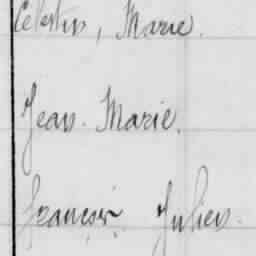 Célestin, Marie.
Jean-Marie.
François Julien.